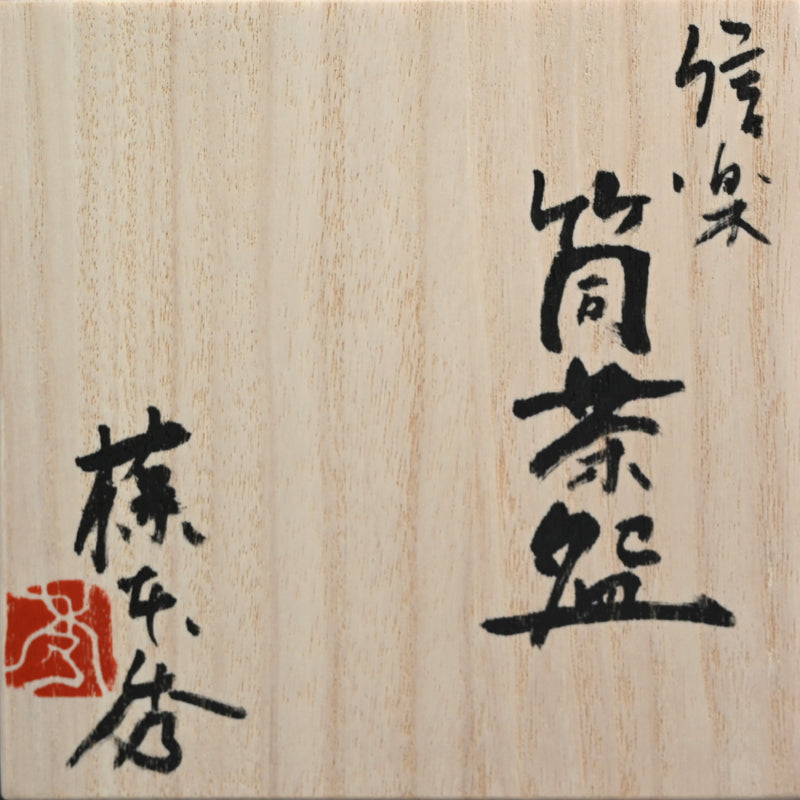 信楽
筒茶盌
藤本秀